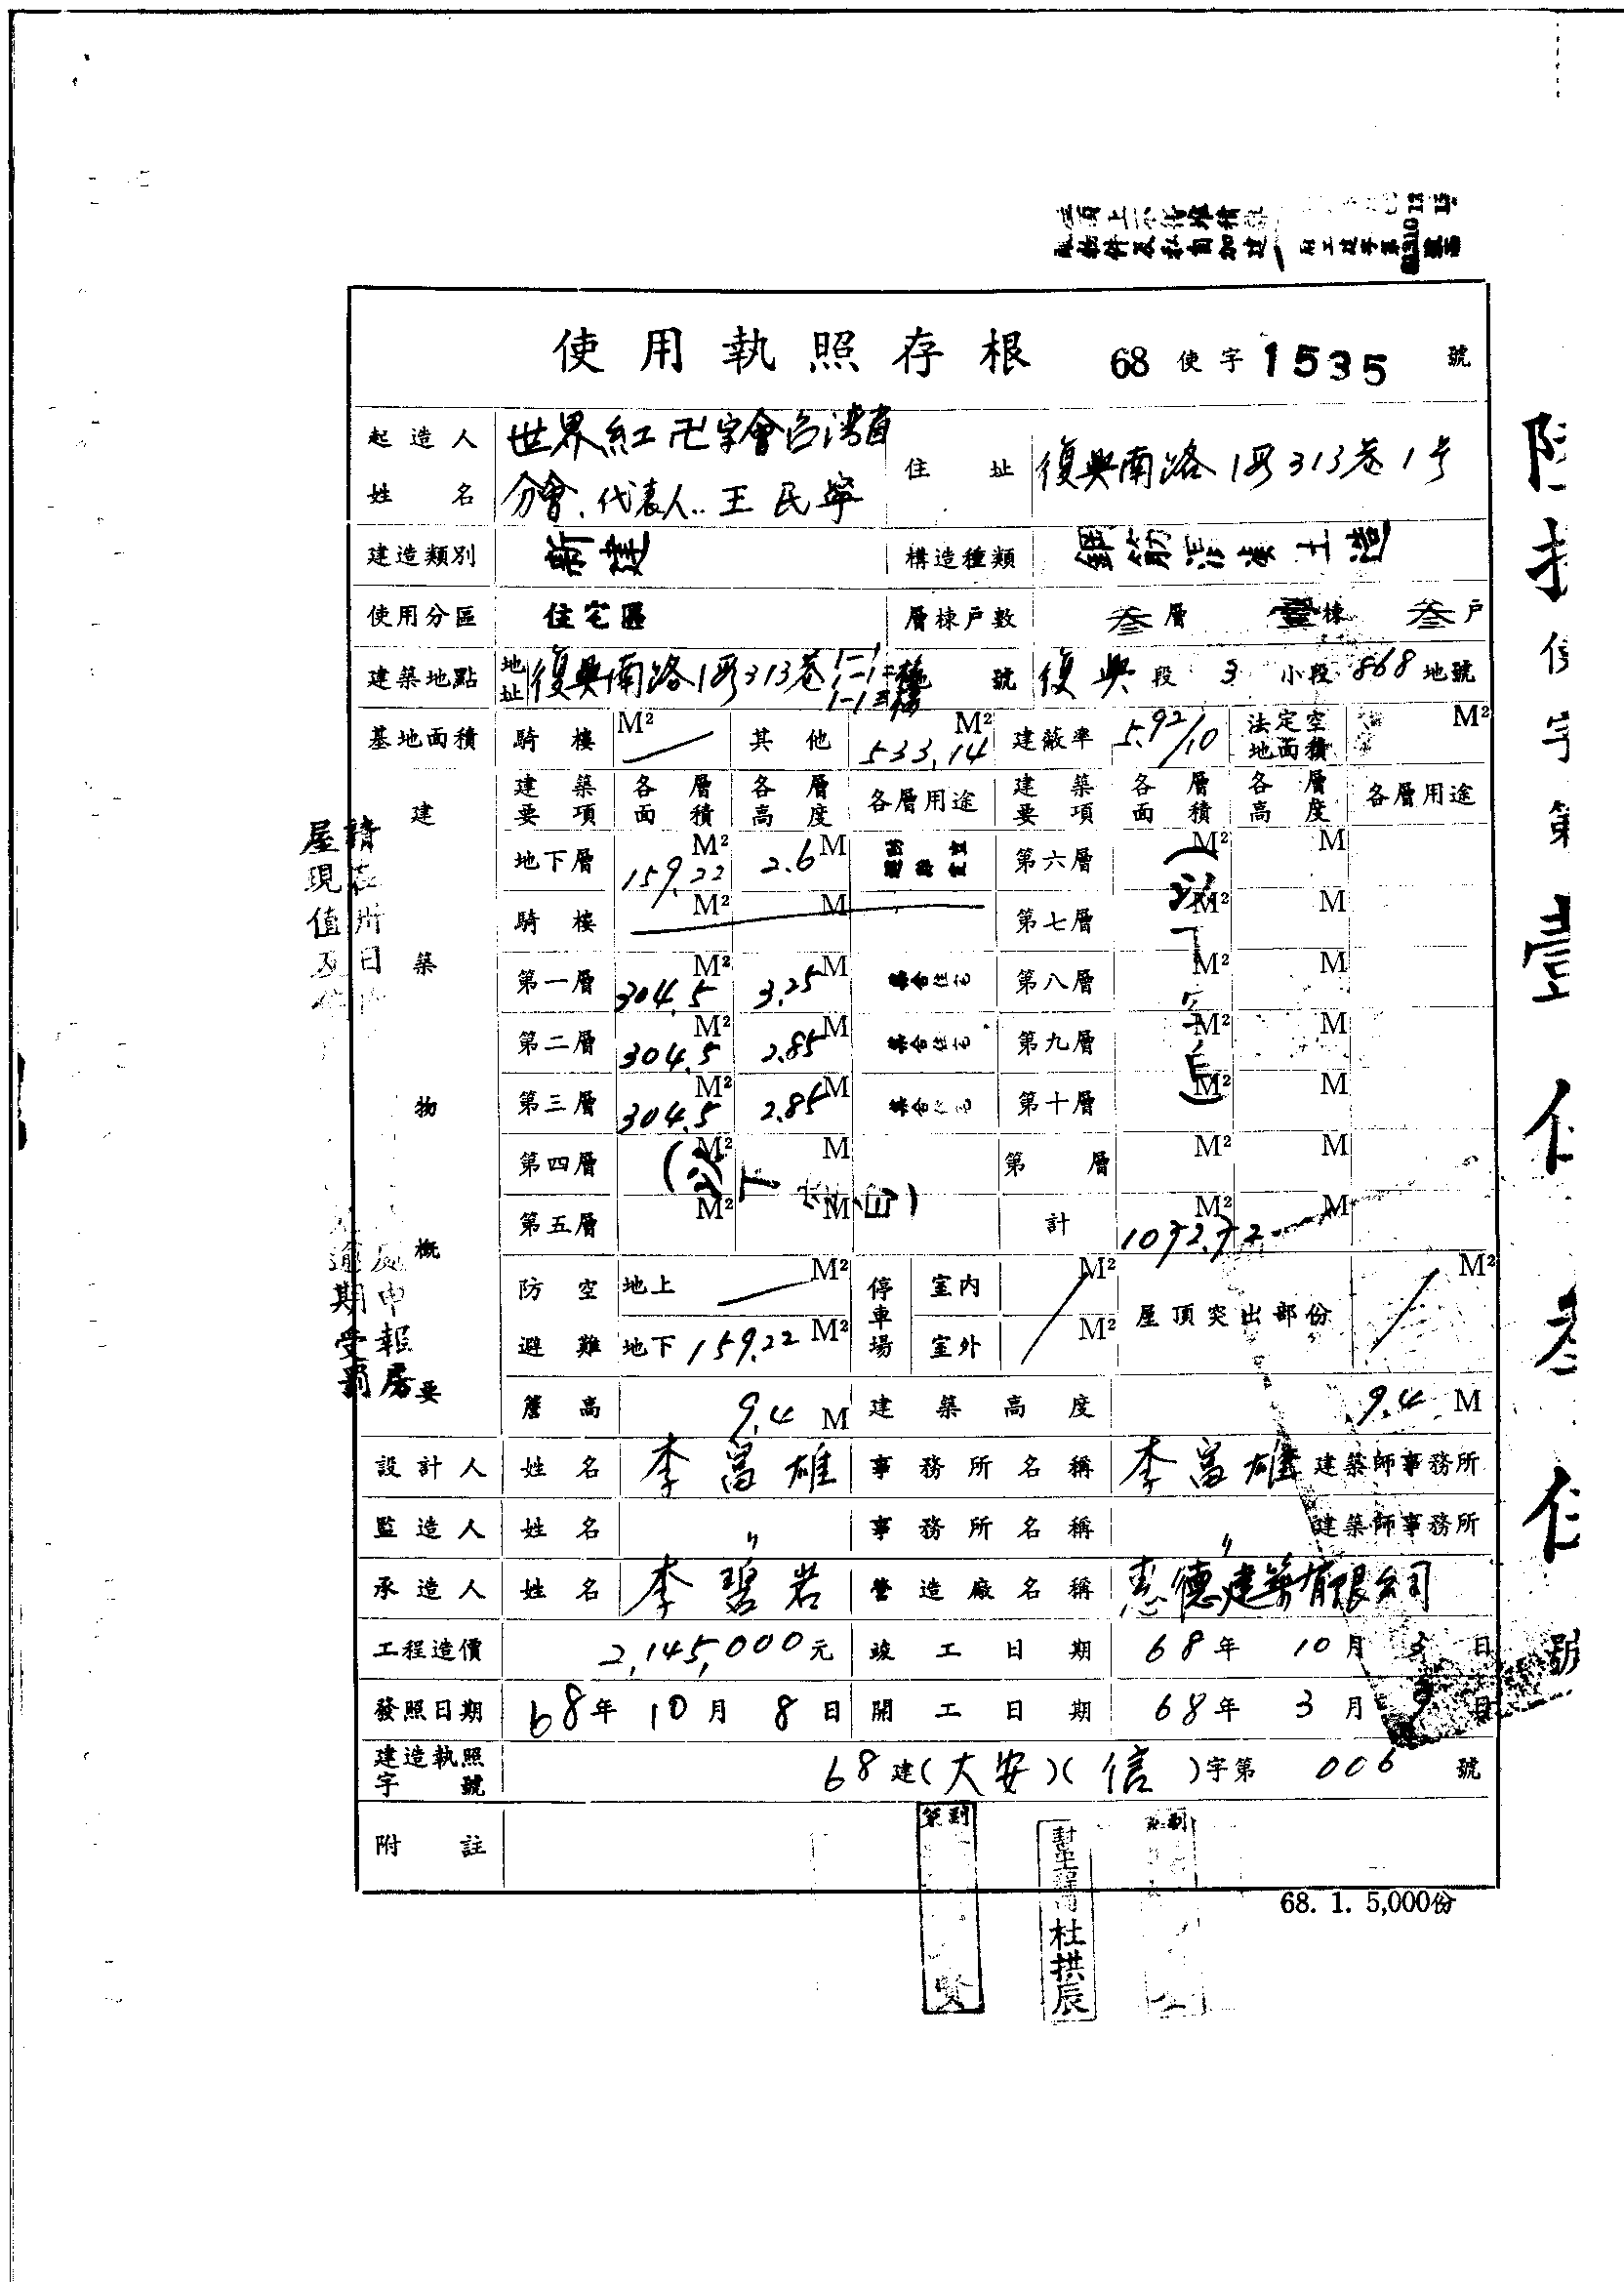 使用執照存根 68 使字 1535 號
起造人姓名 世界紅卍字會台灣省分會.代表人..王民寧 住址 復興南路1段313巷1号
建造類別 新建 構造種類 鋼筋混凝土造
使用分區 住宅區 層棟戶數 叁層 壹棟 叁戶
建築地點 地址 復興南路1段313巷 1-1 1-1二樓 1-1三樓 號 復興段 3 小段 868 地號
基地面積 騎樓 M² 其他 533.14 M² 建蔽率 5.92/10 法定空地面積 M²
建築物概要
建築要項 各層面積 各層高度 各層用途 建築要項 各層面積 各層高度 各層用途
地下層 159.22 M² 2.6 M 第六層 M² M
騎樓 M² M 第七層 M² M
第一層 304.5 M² 3.25 M 集合住宅 第八層 M² M
第二層 304.5 M² 2.85 M 集合住宅 第九層 M² M
第三層 304.5 M² 2.85 M 集合住宅 第十層 M² M
第四層 M² M 第 層 M² M
(以下空白)
第五層 M² M 計 1072.72 M² M
防空避難 地上 M² 停車場 室內 M² 屋頂突出部份 M²
地下 159.22 M² 室外 M²
簷高 9.4 M 建築高度 9.4 M
設計人 姓名 李富雄 事務所名稱 李富雄 建築師事務所
監造人 姓名 〃 事務所名稱 〃 建築師事務所
承造人 姓名 李碧岩 營造廠名稱 惠德建築有限公司
工程造價 2,145,000元 竣工日期 68年 10月 日
發照日期 68年 10月 8日 開工日期 68年 3月 日
建造執照字號 68建(大安)(信)字第 006 號
附註
68. 1. 5,000份
杜拱辰